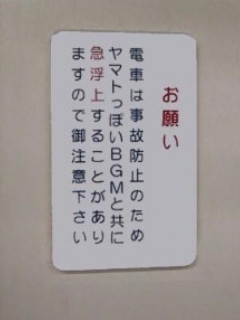 お願い
電車は事故防止のため
ヤマトっぽいBGMと共に
急浮上することがあり
ますので御注意下さい